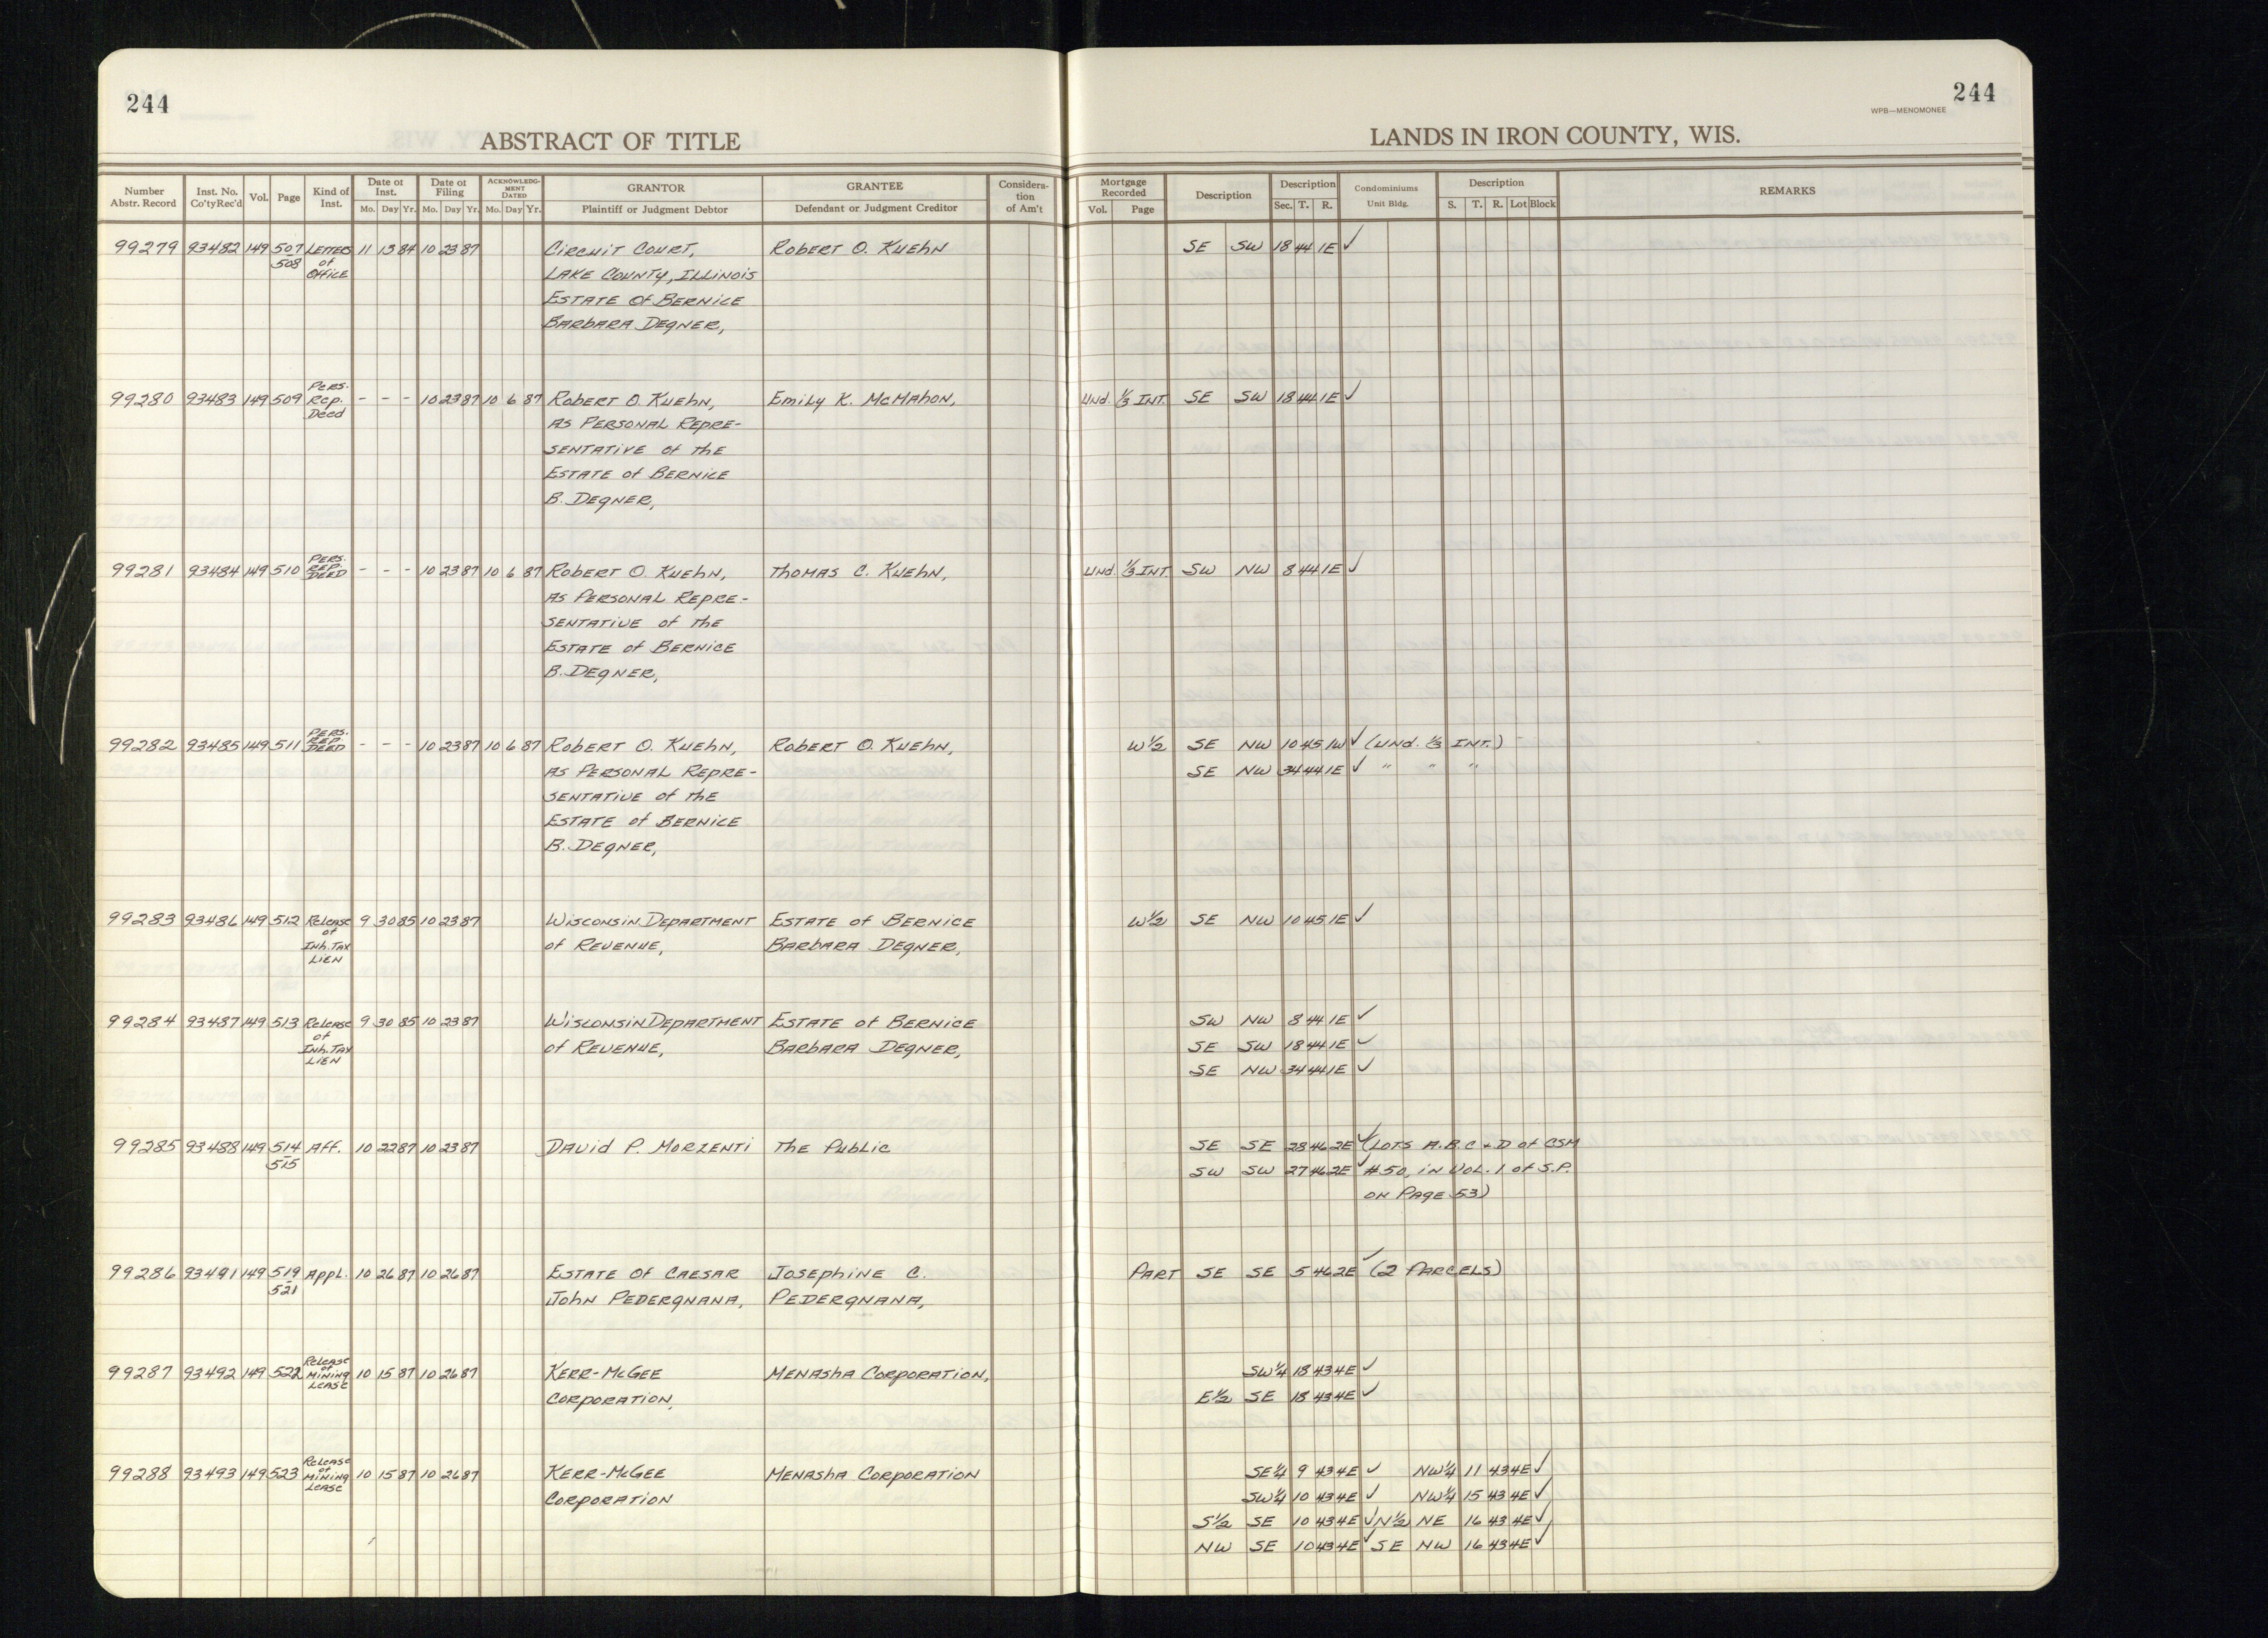 244
ABSTRACT OF TITLE
Number Abstr. Record Inst. No. Co'ty Rec'd Vol. Page Kind of Inst. Date of Inst. Mo. Day Yr. Date of Filing Mo. Day Yr. ACKNOWLEDGMENT DATED Mo. Day Yr. GRANTOR Plaintiff or Judgment Debtor GRANTEE Defendant or Judgment Creditor Consideration of Am't
244
WPB—MENOMONEE
LANDS IN IRON COUNTY, WIS.
Mortgage Recorded Vol. Page Description Description Sec. T. R. Condominiums Unit Bldg. Description S. T. R. Lot Block REMARKS
99279 93482 149 507 LETTERS 11 13 84 10 23 87 CIRCUIT COURT, ROBERT O. KUEHN SE SW 18 44 1E ✓
508 of LAKE COUNTY, ILLINOIS
OFFICE ESTATE OF BERNICE
BARBARA DEGNER,
99280 93483 149 509 PERS. Rep. Deed - - - 10 23 87 10 6 87 ROBERT O. KUEHN, EMILY K. McMAHON, Und. 1/3 INT. SE SW 18 44 1E ✓
AS PERSONAL REPRE-
SENTATIVE of the
ESTATE of BERNICE
B. DEGNER,
99281 93484 149 510 PERS. REP. DEED - - - 10 23 87 10 6 87 ROBERT O. KUEHN, THOMAS C. KUEHN, Und. 1/3 INT. SW NW 8 44 1E ✓
AS PERSONAL REPRE-
SENTATIVE of the
ESTATE of BERNICE
B. DEGNER,
99282 93485 149 511 PERS. REP. DEED - - - 10 23 87 10 6 87 ROBERT O. KUEHN, ROBERT O. KUEHN, W 1/2 SE NW 10 45 1W ✓ (Und. 1/3 INT.)
AS PERSONAL REPRE- SE NW 34 44 1E ✓ " " "
SENTATIVE of the
ESTATE of BERNICE
B. DEGNER,
99283 93486 149 512 Release 9 30 85 10 23 87 WISCONSIN DEPARTMENT ESTATE of BERNICE W 1/2 SE NW 10 45 1E ✓
of Inh. TAX of REVENUE, BARBARA DEGNER,
LIEN
99284 93487 149 513 Release 9 30 85 10 23 87 WISCONSIN DEPARTMENT ESTATE of BERNICE SW NW 8 44 1E ✓
of Inh. TAX of REVENUE, BARBARA DEGNER, SE SW 18 44 1E ✓
LIEN SE NW 34 44 1E ✓
99285 93488 149 514 Aff. 10 22 87 10 23 87 DAVID P. MORZENTI The Public SE SE 28 46 2E ✓ (LOTS A.B.C & D of CSM
515 SW SW 27 46 2E ✓ #50, in VOL. 1 of S.P.
ON PAGE 53)
99286 93491 149 519 Appl. 10 26 87 10 26 87 ESTATE OF CAESAR JOSEPHINE C. PART SE SE 5 46 2E ✓ (2 PARCELS)
521 JOHN PEDERGNANA, PEDERGNANA,
99287 93492 149 522 Release of MINING Lease 10 15 87 10 26 87 KERR-McGEE MENASHA CORPORATION, SW 1/4 18 43 4E ✓
CORPORATION, E 1/2 SE 18 43 4E ✓
99288 93493 149 523 Release of MINING Lease 10 15 87 10 26 87 KERR-McGEE MENASHA CORPORATION SE 1/4 9 43 4E ✓ NW 1/4 11 43 4E ✓
CORPORATION SW 1/4 10 43 4E ✓ NW 1/4 15 43 4E ✓
S 1/2 SE 10 43 4E ✓ N 1/2 NE 16 43 4E ✓
NW SE 10 43 4E ✓ SE NW 16 43 4E ✓